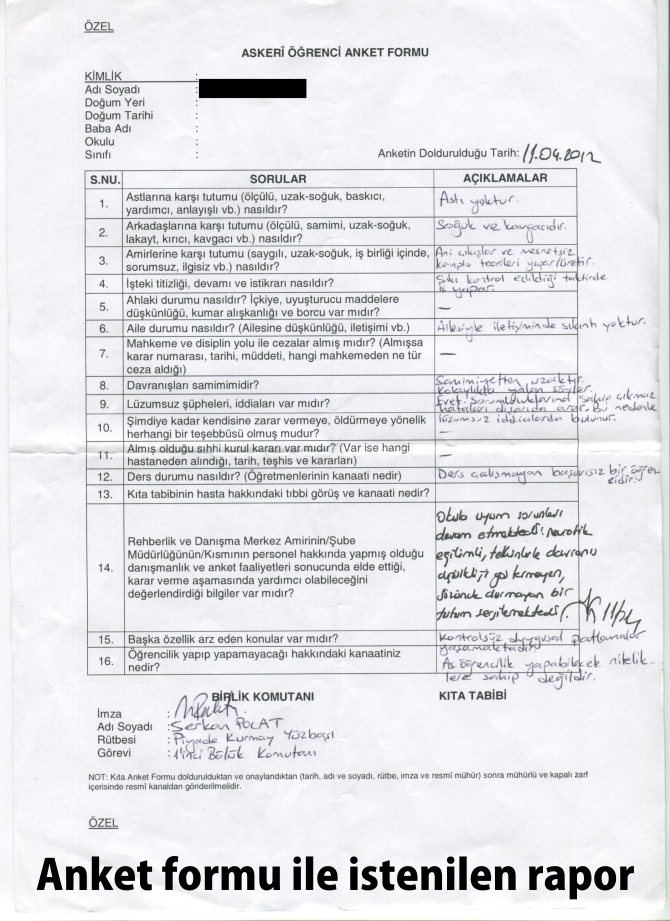 ÖZEL
ASKERÎ ÖĞRENCİ ANKET FORMU
KİMLİK :
Adı Soyadı :
Doğum Yeri :
Doğum Tarihi :
Baba Adı :
Okulu :
Sınıfı :
Anketin Doldurulduğu Tarih: 11.04.2012
S.NU. SORULAR AÇIKLAMALAR
1. Astlarına karşı tutumu (ölçülü, uzak-soğuk, baskıcı,
yardımcı, anlayışlı vb.) nasıldır?
Astı yoktur.
2. Arkadaşlarına karşı tutumu (ölçülü, samimi, uzak-soğuk,
lakayt, kırıcı, kavgacı vb.) nasıldır?
Soğuk ve kavgacıdır.
3. Amirlerine karşı tutumu (saygılı, uzak-soğuk, iş birliği içinde,
sorumsuz, ilgisiz vb.) nasıldır?
Ani çıkışlar ve mesnetsiz
komplo teorileri yapar/üretir.
4. İşteki titizliği, devamı ve istikrarı nasıldır?
Sıkı kontrol edildiği taktirde
iş yapar.
5. Ahlaki durumu nasıldır? İçkiye, uyuşturucu maddelere
düşkünlüğü, kumar alışkanlığı ve borcu var mıdır?
—
6. Aile durumu nasıldır? (Ailesine düşkünlüğü, iletişimi vb.)
Ailesiyle iletişiminde sıkıntı yoktur.
7. Mahkeme ve disiplin yolu ile cezalar almış mıdır? (Almışsa
karar numarası, tarihi, müddeti, hangi mahkemeden ne tür
ceza aldığı)
—
8. Davranışları samimimidir?
Samimiyetten uzaktır.
Kolaylıkla yalan söyler.
9. Lüzumsuz şüpheleri, iddiaları var mıdır?
Evet. Sorumluluklarına sahip çıkmaz
hataları dışarıda arar. Bu nedenle
lüzumsuz iddialarda bulunur.
10. Şimdiye kadar kendisine zarar vermeye, öldürmeye yönelik
herhangi bir teşebbüsü olmuş mudur?
—
11. Almış olduğu sıhhi kurul kararı var mıdır? (Var ise hangi
hastaneden alındığı, tarih, teşhis ve kararları)
—
12. Ders durumu nasıldır? (Öğretmenlerinin kanaati nedir)
Ders çalışmayan başarısız bir öğren
cidir.
13. Kıta tabibinin hasta hakkındaki tıbbi görüş ve kanaati nedir?
14. Rehberlik ve Danışma Merkez Amirinin/Şube
Müdürlüğünün/Kısmının personel hakkında yapmış olduğu
danışmanlık ve anket faaliyetleri sonucunda elde ettiği,
karar verme aşamasında yardımcı olabileceğini
değerlendirdiği bilgiler var mıdır?
Okula uyum sorunları
devam etmektedir. nevrotik
eğilimli, telkinlerle davranış
değişikliği göstermeyen,
sözünde durmayan bir
tutum sergilemektedir.
15. Başka özellik arz eden konular var mıdır?
Kontrolsüz duygusal patlamalar
yaşamaktadır.
16. Öğrencilik yapıp yapamayacağı hakkındaki kanaatiniz
nedir?
As. öğrencilik yapabilecek nitelik-
lere sahip değildir.
BİRLİK KOMUTANI KITA TABİBİ
İmza :
Adı Soyadı : Serkan POLAT
Rütbesi : Piyade Kurmay Yüzbaşı
Görevi : 1'inci Bölük Komutanı
NOT: Kıta Anket Formu doldurulduktan ve onaylandıktan (tarih, adı ve soyadı, rütbe, imza ve resmî mühür) sonra mühürlü ve kapalı zarf
içerisinde resmî kanaldan gönderilmelidir.
ÖZEL
Anket formu ile istenilen rapor